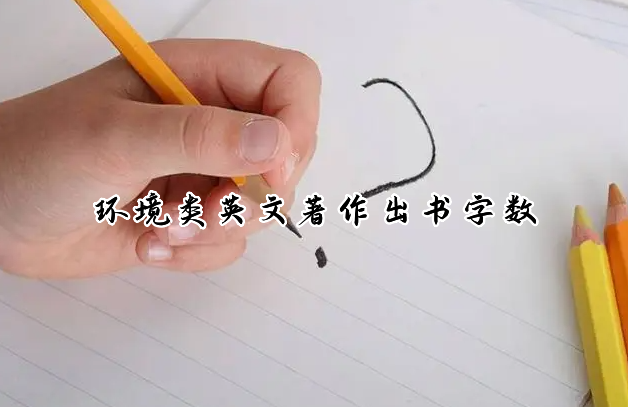 环境类英文著作出书字数